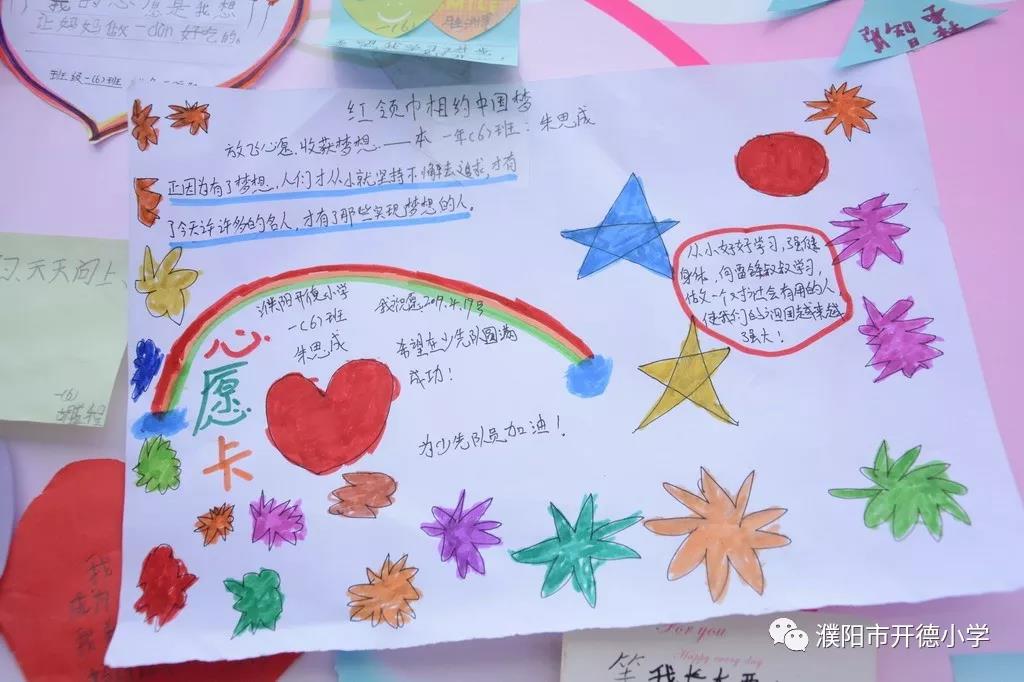 我的心愿是我想
让妈妈做一dùn好吃的。
班级一(6)班
SMILE
红领巾相约中国梦
放飞心愿.收获梦想.——本一年(6)班：朱思成
正因为有了梦想，人们才从小就坚持不懈去追求，才有
了今天许许多多的名人，才有了那些实现梦想的人。
从小好好学习，强健
身体，向雷锋叔叔学习，
做一个对社会有用的人
使我们的祖国越来越
强大！
濮阳开德小学
一(6)班
朱思成
我祝愿2019.4.17号
希望在少先队圆满
成功！
为少先队员加油！
心
愿
卡
习，天天向上
一(6)
我
成为
我
For you
Happy every day
我长大要
濮阳市开德小学